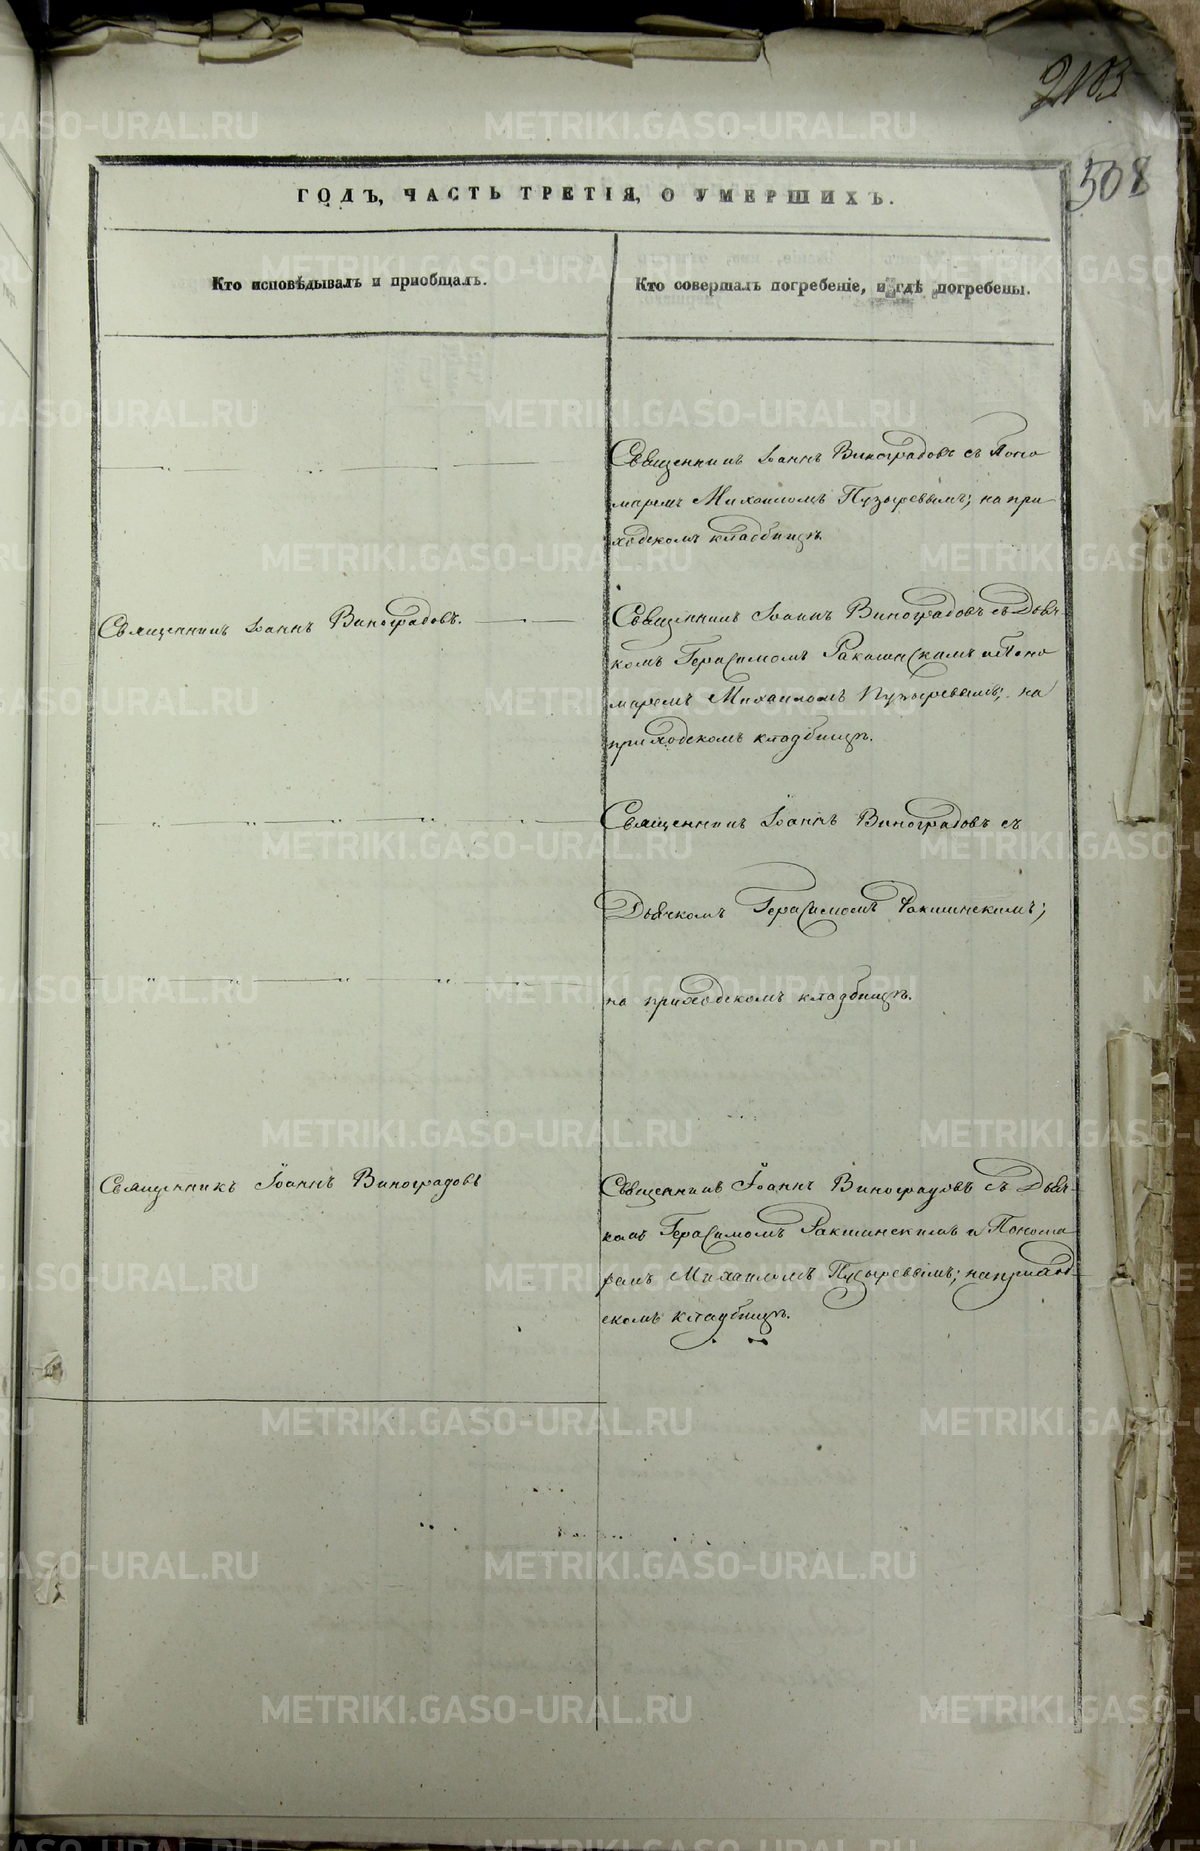 2103
508
ГОДЪ, ЧАСТЬ ТРЕТІЯ, О УМЕРШИХЪ.
Кто исповѣдывалъ и приобщалъ.
Кто совершалъ погребеніе, и гдѣ погребены.
Священникъ Іоаннъ Виноградовъ съ Поно
маремъ Михаиломъ Пузыревымъ; на при
ходскомъ кладбищѣ.
Священникъ Іоаннъ Виноградовъ.
Священникъ Іоаннъ Виноградовъ съ Дьяч-
комъ Герасимомъ Ракшинскимъ и Поно
маремъ Михаиломъ Пузыревымъ; на
приходскомъ кладбищѣ.
Священникъ Іоаннъ Виноградовъ съ
Дьячкомъ Герасимомъ Ракшинскимъ;
на приходскомъ кладбищѣ.
Священникъ Іоаннъ Виноградовъ
Священникъ Іоаннъ Виноградовъ съ Дьяч-
комъ Герасимомъ Ракшинскимъ и Понома
ремъ Михаиломъ Пузыревымъ; на приход-
скомъ кладбищѣ.
METRIKI.GASO-URAL.RU